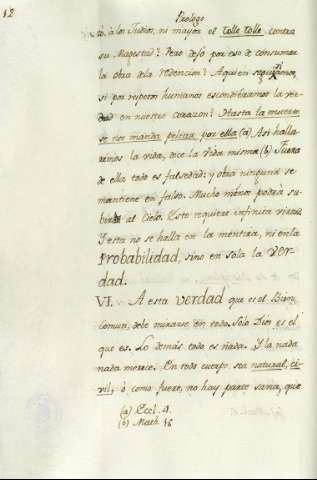 12
Prologo
tó, à los Judios, ni mayor el tolle tolle contra
su Magestad? Pero dejó por eso de consumar
la obra de la redencion? A quien seguiramos,
si por respetos humanos escondieramos la ver-
dad en nuestro corazon? Hasta la muerte
se nos manda pelear por ella (a) Asi halla
remos la vida, dice la Vida misma (b) Fuera
de ella todo es falsedad: y obra ninguna se
mantiene en falso. Mucho menos podrá su-
birse al Cielo. Este requiere infinita virtud
Y esta no se halla en la mentira, ni en la
Probabilidad, sino en sola la Ver-
dad.
VI. A esta verdad que es el Bien
comun, debe mirarse en todo. Solo Dios es el
que es. Lo demás todo es nada. Y la nada
nada merece. En todo cuerpo, sea natural, ci-
vil, ò como fuere, no hay parte sana, que
(a) Eccl. 4.
(b) Math. 16